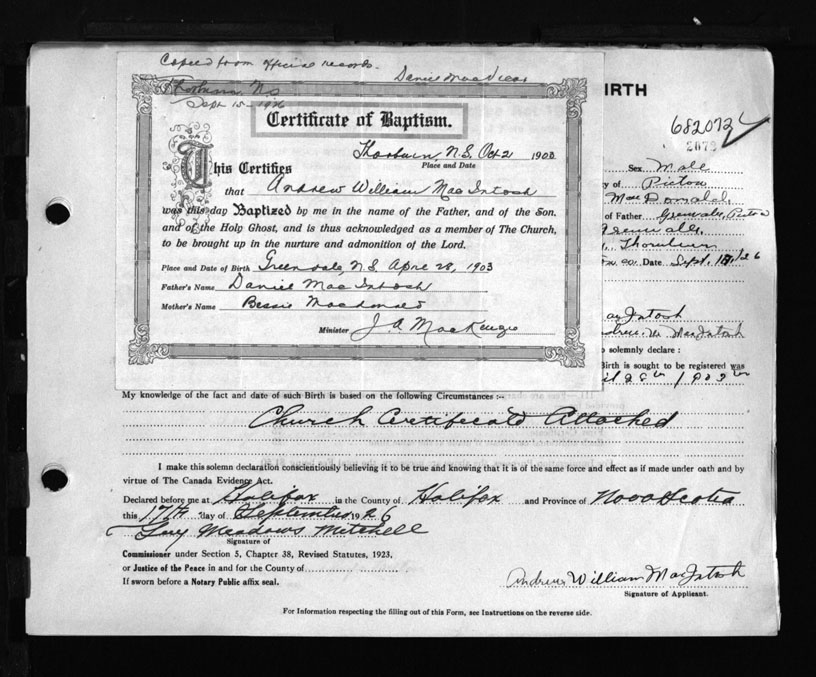 Copied from official records.
Thorburn, N.S.
Sept 15 - 1926
Certificate of Baptism.
Thorburn, N.S. Oct 21 1903
Place and Date
This Certifies
that Andrew William MacIntosh
was this day Baptized by me in the name of the Father, and of the Son,
and of the Holy Ghost, and is thus acknowledged as a member of The Church,
to be brought up in the nurture and admonition of the Lord.
Place and Date of Birth Greendale, N.S. April 28, 1903
Father's Name Daniel MacIntosh
Mother's Name Bessie Macdonald
Minister J A MacKenzie
IRTH
682072
2072
Sex Male
y of Pictou
MacDonald
of Father Greendale, Pictou
Thorburn
Date Sept. 26
acIntosh
ndrew W MacIntosh
o solemnly declare :
Birth is sought to be registered was
il 28th 1903
My knowledge of the fact and date of such Birth is based on the following Circumstances :-
Church Certificate Attached
I make this solemn declaration conscientiously believing it to be true and knowing that it is of the same force and effect as if made under oath and by
virtue of The Canada Evidence Act.
Declared before me at Halifax in the County of Halifax and Province of Nova Scotia
this 17th day of September 1926
Meadows Mitchell
Signature of
Commissioner under Section 5, Chapter 38, Revised Statutes, 1923,
or Justice of the Peace in and for the County of
If sworn before a Notary Public affix seal.
Andrew William MacIntosh
Signature of Applicant.
For Information respecting the filling out of this Form, see Instructions on the reverse side.